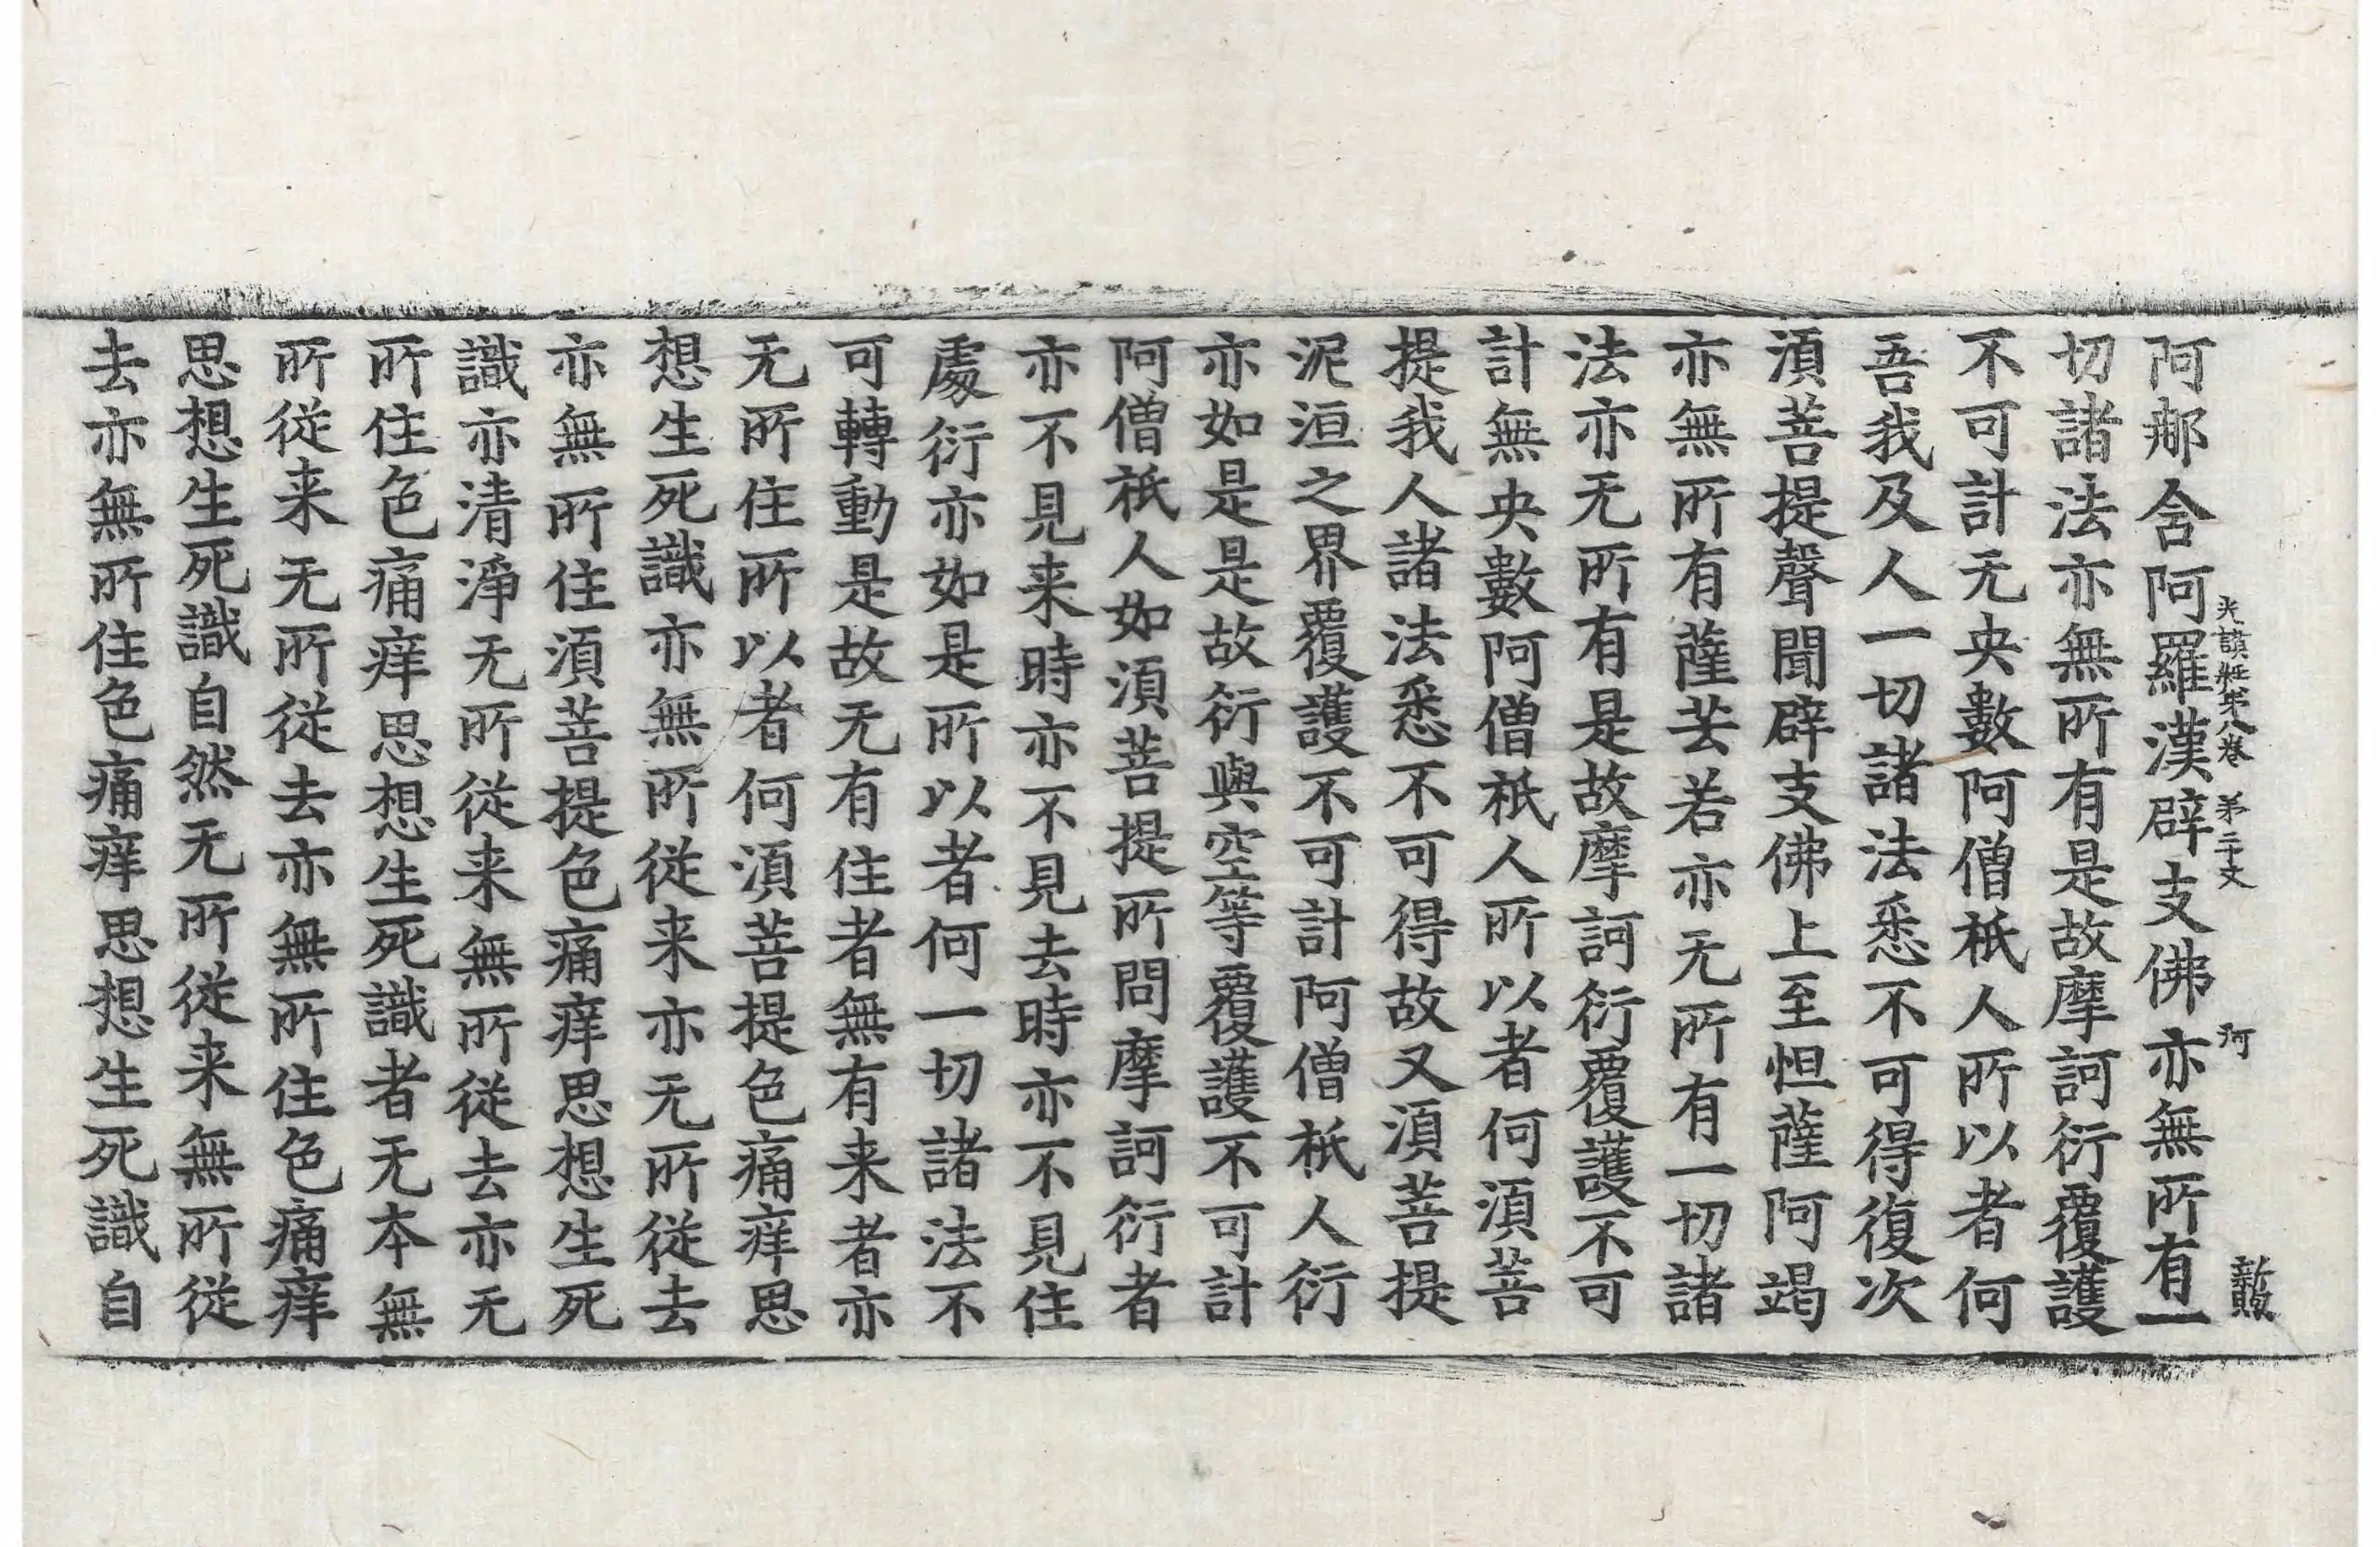 光讃経第八卷 第二十丈 河
阿那含阿羅漢辟支佛亦無所有一
切諸法亦無所有是故摩訶衍覆護
不可計无央數阿僧祇人所以者何
吾我及人一切諸法悉不可得復次
湏菩提聲聞辟支佛上至怛薩阿竭
亦無所有薩芸若亦无所有一切諸
法亦无所有是故摩訶衍覆護不可
計無央數阿僧祇人所以者何湏菩
提我人諸法悉不可得故又湏菩提
泥洹之界覆護不可計阿僧祇人衍
亦如是是故衍與空等覆護不可計
阿僧祇人如湏菩提所問摩訶衍者
亦不見来時亦不見去時亦不見住
處衍亦如是所以者何一切諸法不
可轉動是故无有住者無有来者亦
无所住所以者何湏菩提色痛痒思
想生死識亦無所従来亦无所従去
亦無所住湏菩提色痛痒思想生死
識亦清淨无所従来無所従去亦无
所住色痛痒思想生死識者无本無
所従来无所従去亦無所住色痛痒
思想生死識自然无所従来無所従
去亦無所住色痛痒思想生死識自